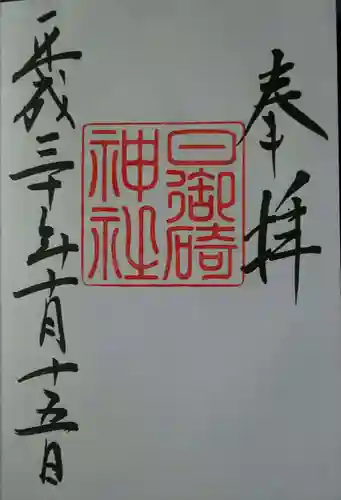 奉拝
日御碕神社
平成三十年十月十五日